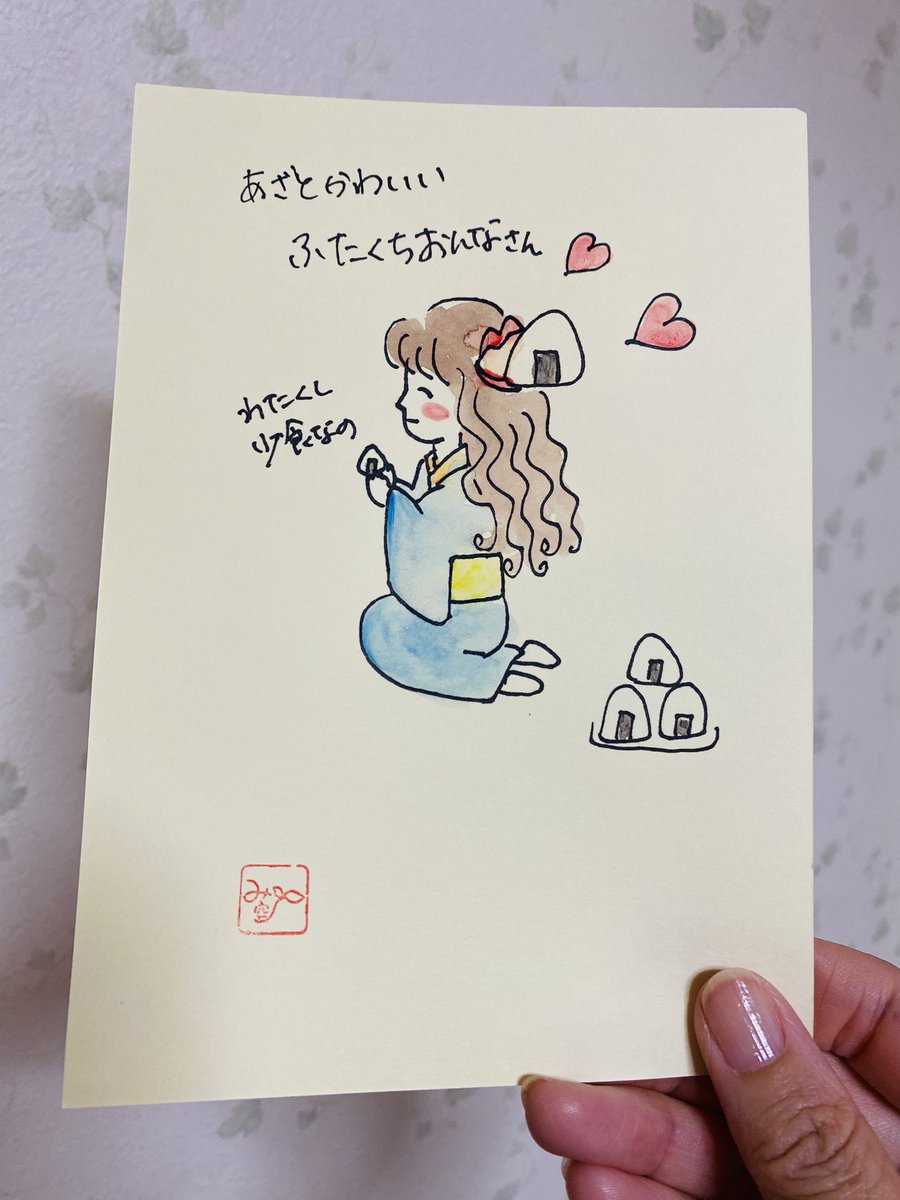 あざとかわいい
ふたくちおんなさん
わたくし
少食なの
み空